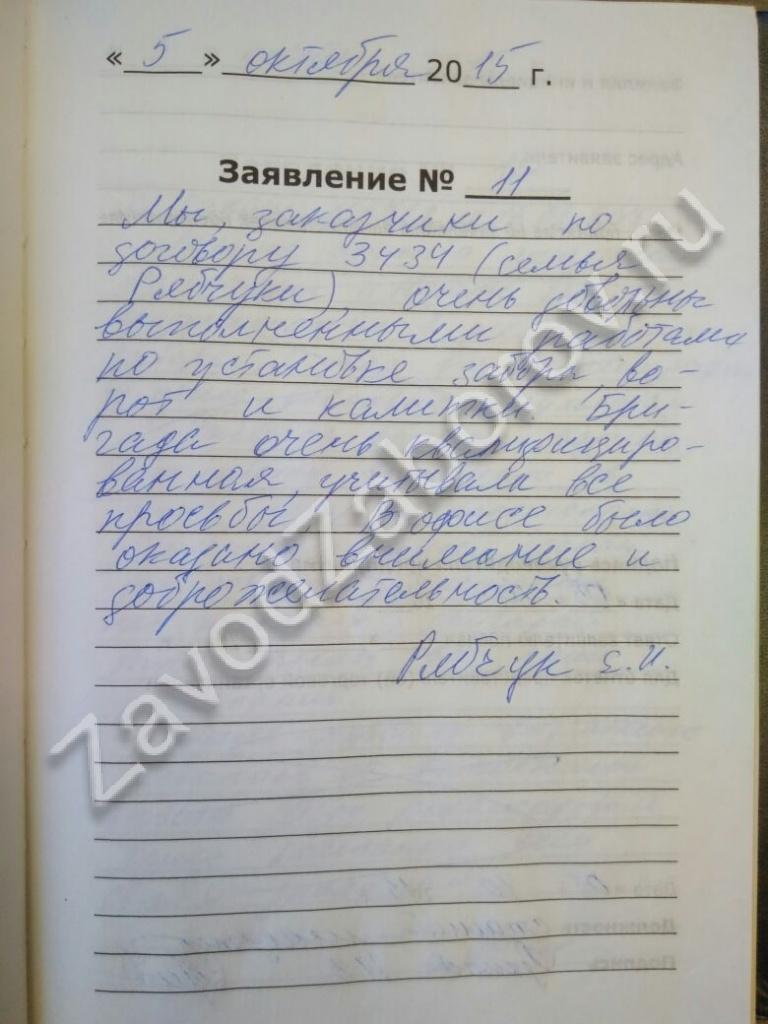 « 5 » октября 2015 г.
Заявление № 11
Мы, заказчики по
договору 3434 (семья
Рябчуки), очень довольны
выполненными работами
по установке забора, во-
рот и калитки. Бри-
гада очень квалифициро-
ванная, учитывала все
просьбы. В офисе было
оказано внимание и
доброжелательность.
Рябчук Е.И.
ZavodZaborov.ru